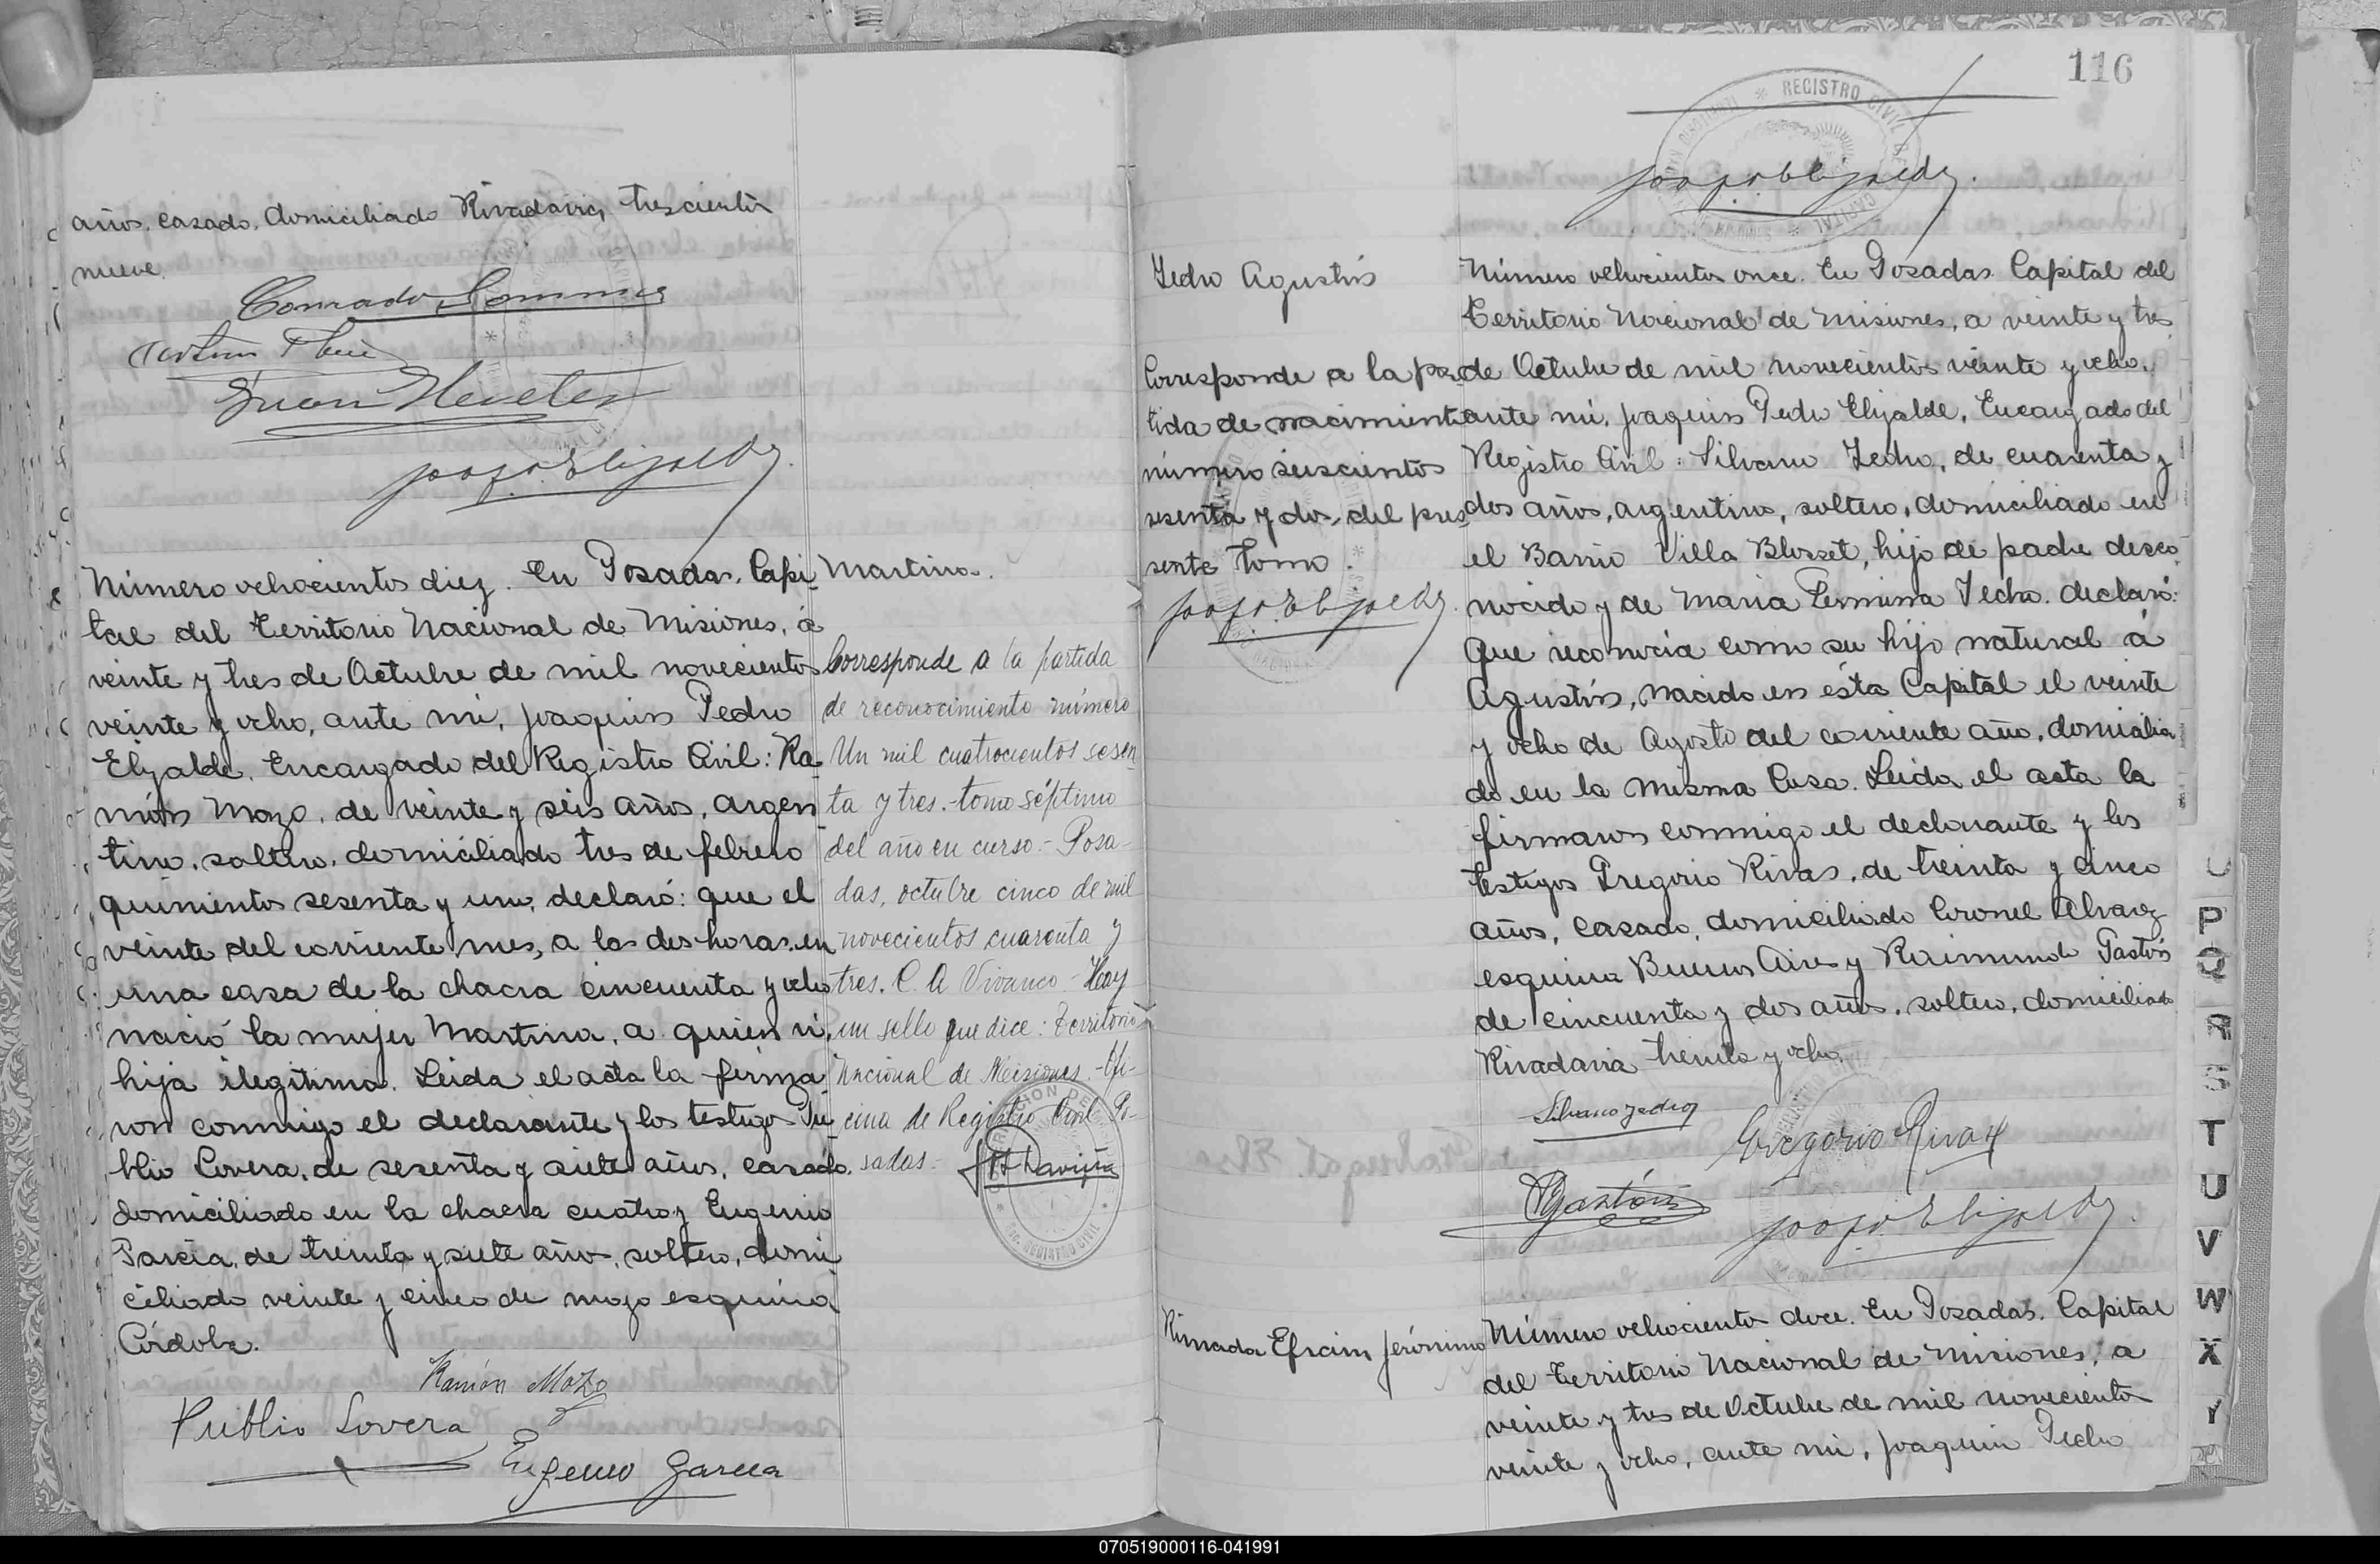 años, casado, domiciliado Rivadavia, trescientos
nueve.
Conrado
Juan
Joaq. P. Elizalde.
Número ochocientos diez. En Posadas, Capi
tal del Territorio Nacional de Misiones, á
veinte y tres de Octubre de mil novecientos
veinte y ocho, ante mi, Joaquin Pedro
Elizalde, Encargado del Registro Civil: Ra
món Mozo, de veinte y seis años, argen
tino, soltero, domiciliado tres de febrero
quinientos sesenta y uno, declaró: que el
veinte del corriente mes, a las dos horas, en
una casa de la chacra cincuenta y ocho
nació la mujer Martina, a quien vi,
hija ilegítima. Leida el acta la firma
ron conmigo el declarante y los testigos Pu
blio Lovera, de sesenta y siete años, casado,
domiciliado en la chacra cuatro y Eugenio
Garcia, de treinta y siete años, soltero, domi
ciliado veinte y cinco de mayo esquina
Córdoba.
Ramón Mozo
Publio Lovera
Eugenio Garcia
Martina.
Corresponde a la partida
de reconocimiento número
Un mil cuatrocientos sesen
ta y tres.- tomo séptimo
del año en curso.- Posa-
das, octubre cinco de mil
novecientos cuarenta y
tres. C. A Vivanco - Hay
un sello que dice: Territorio
Nacional de Misiones.- Ofi-
cina de Registro Civil Po-
sadas.-
REGISTRO CIVIL
116
REGISTRO CIVIL
CAPITAL
Joaq. P. Elizalde.
Yedro Agustín
Corresponde a la par
tida de nacimiento
número seiscientos
sesenta y dos, del pre
sente tomo.
Joaq. P. Elizalde.
Número ochocientos once. En Posadas. Capital del
Territorio Nacional de Misiones, a veinte y tres
de Octubre de mil novecientos veinte y ocho,
ante mi, Joaquin Pedro Elizalde, Encargado del
Registro Civil: Silvano Yedro, de cuarenta y
dos años, argentino, soltero, domiciliado en
el Barrio Villa Blosset, hijo de padre desco
nocido y de Maria Yedro. declaró:
Que reconocia como su hijo natural á
Agustín, nacido en ésta Capital el veinte
y ocho de Agosto del corriente año, domicilia
do en la misma Casa. Leida el acta la
firmaron conmigo el declarante y los
testigos Gregorio Rivas, de treinta y cinco
años, casado, domiciliado Coronel Alvarez
esquina Buenos Aires y Raimundo Gastón
de cincuenta y dos años, soltero, domiciliado
Rivadavia treinta y ocho.
Silvano Yedro
Gregorio Rivas
RGastón
Joaq. P. Elizalde.
Rimada Efraim Jerónimo
Número ochocientos doce. En Posadas. Capital
del Territorio Nacional de Misiones, a
veinte y tres de Octubre de mil novecientos
veinte y ocho, ante mi, Joaquin Pedro
P
Q
R
S
T
U
V
W
X
Y
070519000116-041991